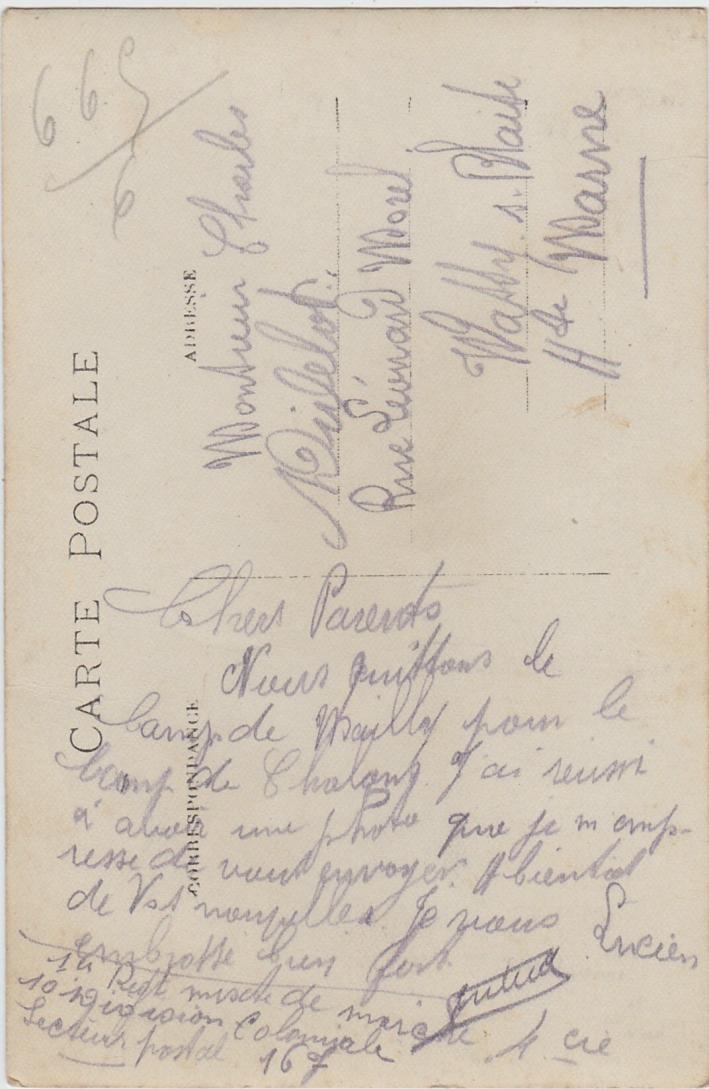 CARTE POSTALE
ADRESSE
Monsieur Charles
Rue Léonard Morel
Wassy s. Blaise
Hte Marne
CORRESPONDANCE
Chers Parents
Nous quittons le
Camp de Mailly pour le
Camp de Chalons J'ai reussi
a avoir une photo que je m emp-
resse de vous envoyer. A bientot
de Vos nouvelles. Je vous
embrasse bien fort
Lucien
Regt mixte de marche
10 Division Coloniale
Secteur postal 167
4 cie